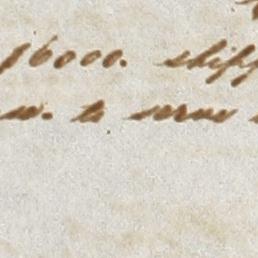 16000. shipp
to serve